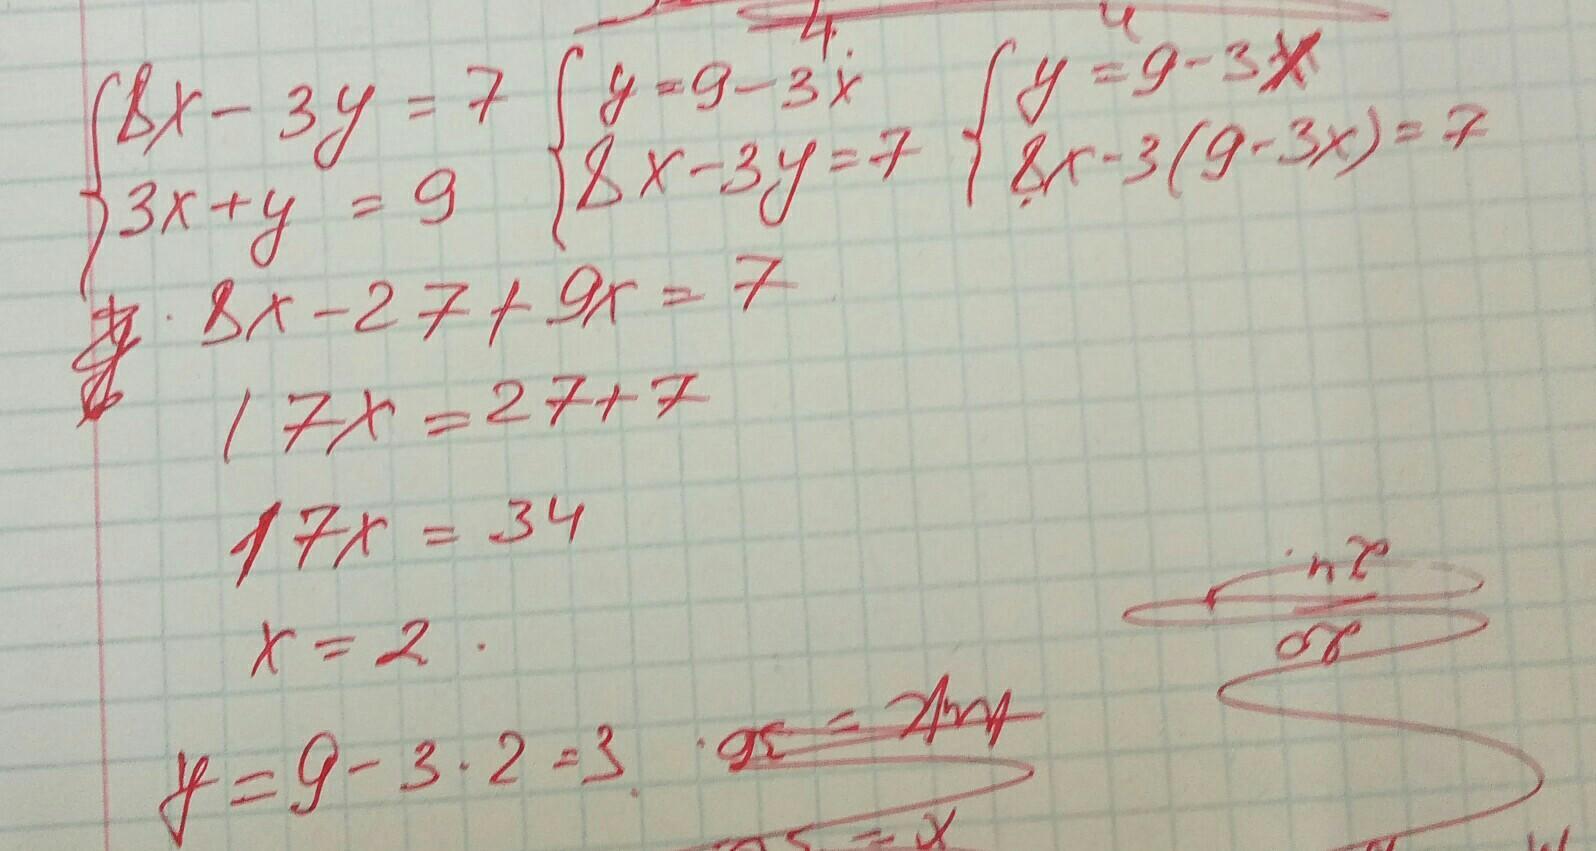 8x - 3y = 7
3x + y = 9
y = 9 - 3x
8x - 3y = 7
y = 9 - 3x
8x - 3(9 - 3x) = 7
8x - 27 + 9x = 7
17x = 27 + 7
17x = 34
x = 2.
y = 9 - 3 · 2 = 3.